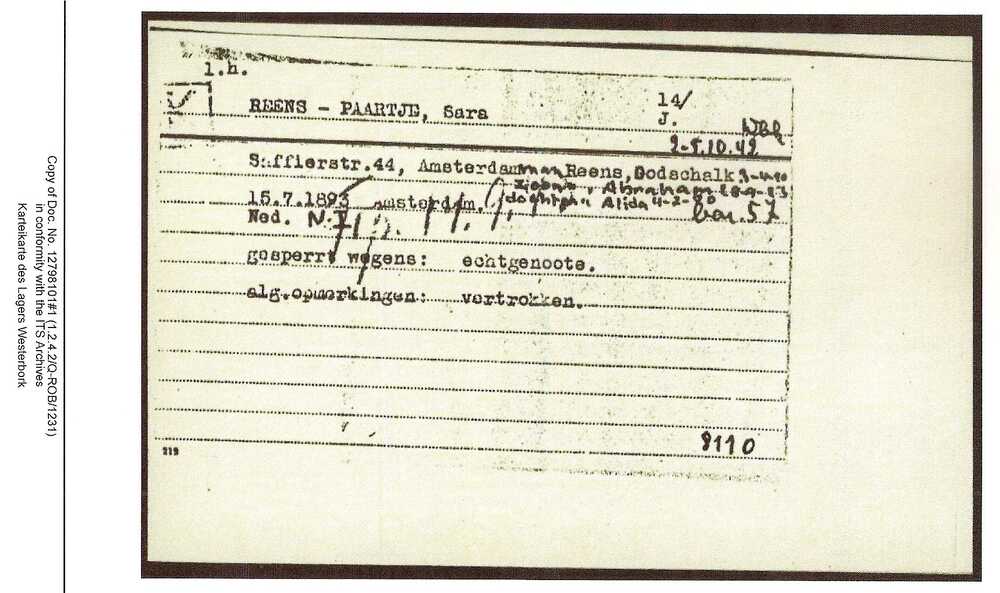 Copy of Doc. No. 12798101#1 (1.2.4.2/Q-ROB/1231)
in conformity with the ITS Archives
Karteikarte des Lagers Westerbork
l.h.
REENS - PAARTJE, Sara 14/
J.
WBR
2-5.10.42
Saffierstr.44, Amsterdam man Reens, Godschalk
Abraham
15.7.1893 Amsterdam. Alida
Ned. N.I bar. 57
gesperrt wegens: echtgenoote.
alg.opmerkingen: vertrokken.
9110
219